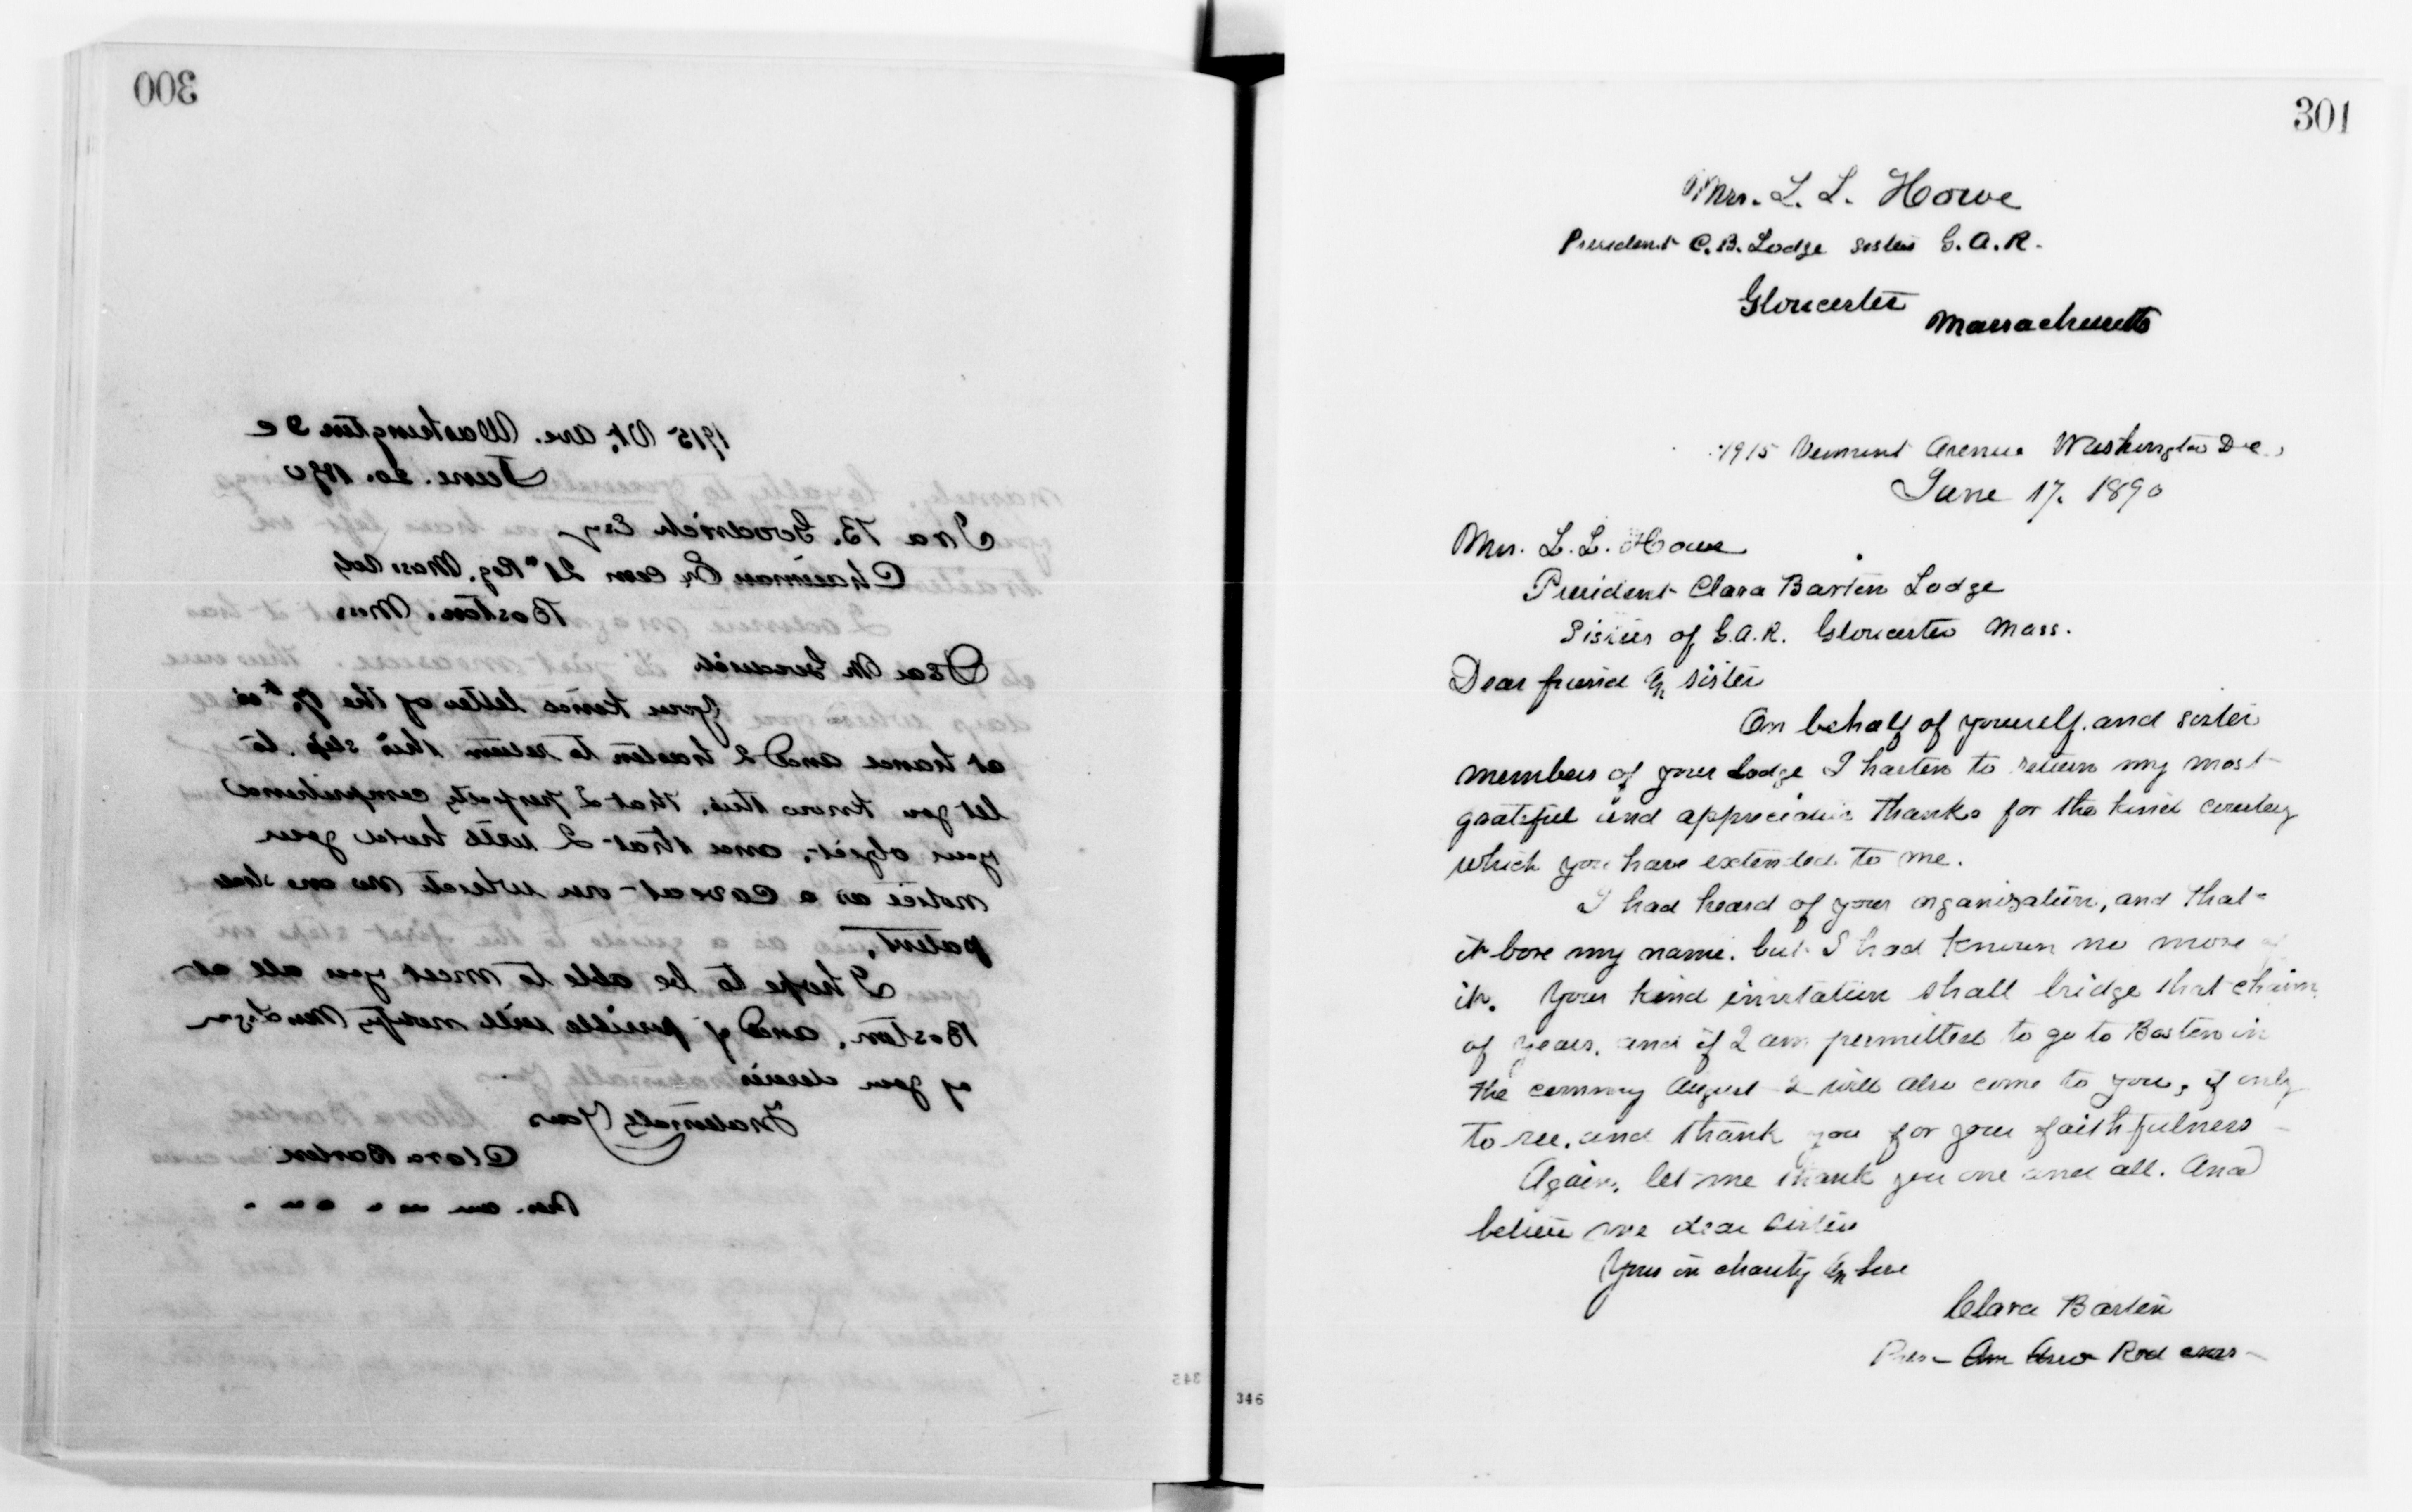 300
1915 Vt. Ave. Washington D C
June. 20. 1890
Ira B. Goodrich Esq
Chairman Ex com 21st Reg. Mass Vols
Boston. Mass
Dear Mr Goodrich.
Your kind letter of the 17th is
at hand and I hasten to return this slip. to
let you know this. that I perfectly comprehend
your object, and that I will hold your
notice as a caveat on which no one else
patent,
I hope to be able to meet you all at
Boston, and if possible will notify Mrs Logan
of your desires
Fraternally Yours
Clara Barton
Pres. Am
345
301
Mrs. L. L. Howe
President C. B. Lodge sisters G. A. R.
Gloucester
Massachusetts
1915 Vermont Avenue Washington D C.
June 17. 1890
Mrs. L. L. Howe
President Clara Barton Lodge
Sisters of G. A. R. Gloucester Mass.
Dear friend & sister
On behalf of yourself. and sister
members of your Lodge I hasten to return my most
grateful and appreciative thanks for the kind courtesy
which you have extended to me.
I had heard of your organization, and that
it bore my name. but I had known no more of
it. Your kind invitation shall bridge that chasm
of years. and if I am permitted to go to Boston in
the coming August I will also come to you, if only
to see. and thank you for your faithfulness
Again, let me thank you one and all. And
believe me dear sister
Yours in charity & love
Clara Barton
Pres - Am Asso Red cross -
346